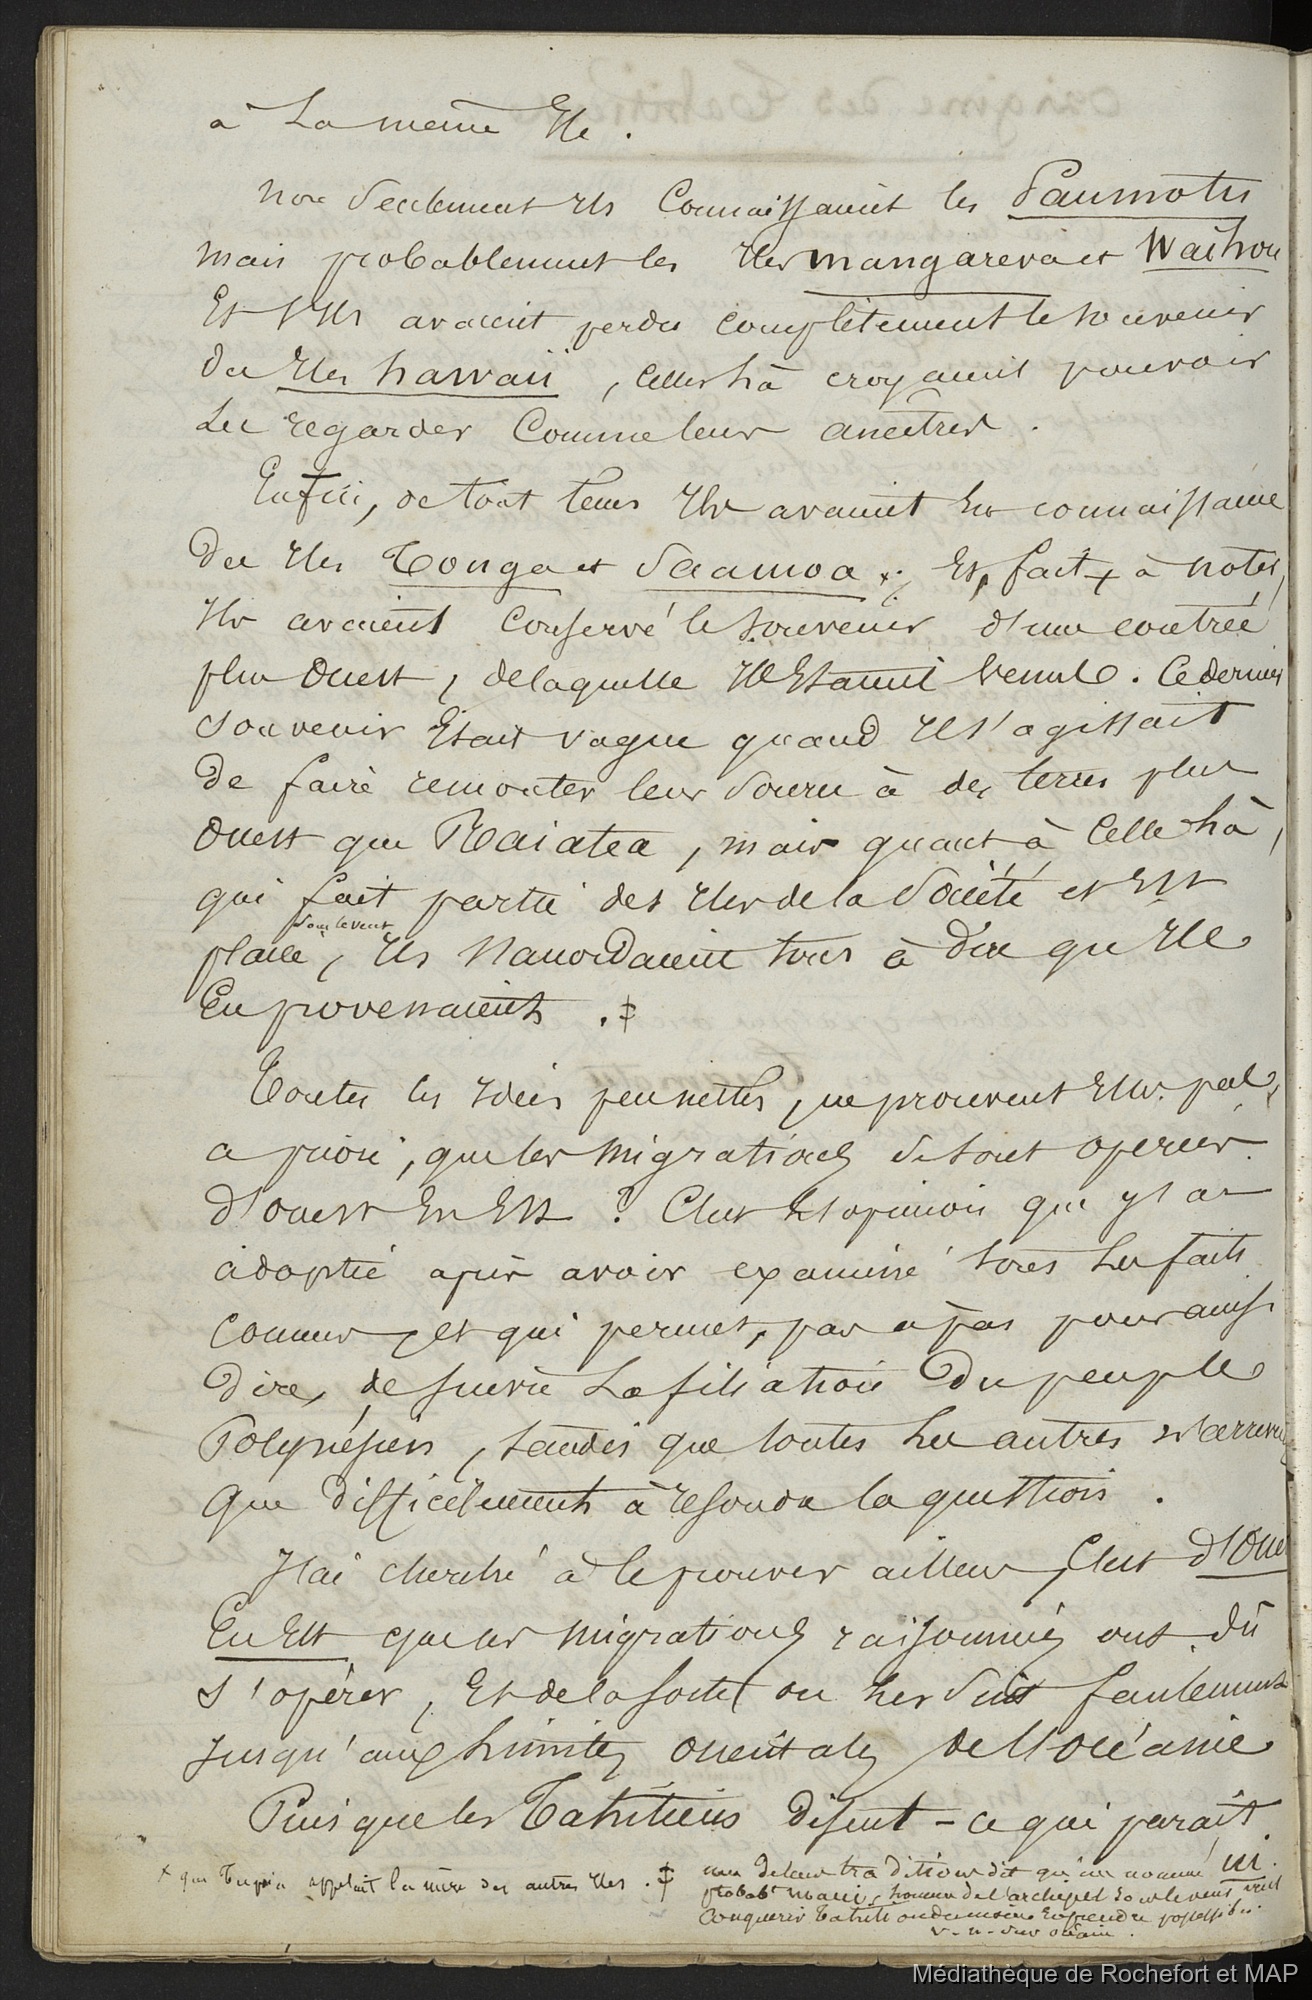 à la même Ile.
non seulement ils connaissaient les Paumotus
mais probablement les Iles mangareva et Waihou
Et s'ils avaient perdu complètement le souvenir
des Iles hawaii, celles là croyaient pouvoir
les regarder comme leurs ancêtres.
Enfin, de tout tems ils avaient eu connaissance
des Iles Tonga et Saamoa × ; Et, fait à noter,
ils avaient conservé le souvenir d'une contrée
plus Ouest, de laquelle ils Etaient venus. Ce dernier
souvenir Etait vague quand il s'agissait
de faire remonter leur source à des terres plus
Ouest que Raiatea, mais quant à celle là,
qui fait partie des Iles de la Société et Est
sous le vent
placée, ils s'accordaient tous à dire qu'ils
En provenaient. ‡
Toutes les idées peu nettes, ne prouvent Elles pas,
a priori, que les migrations se sont opérées
d'ouest En Est ? C'est l'opinion que j'ai
adoptée après avoir examiné tous les faits
connus, et qui permet, pas à pas pour ainsi
dire, de suivre la filiation du peuple
Polynésien, tandis que toutes les autres n'arrivent
que difficilement à résoudre la question.
J'ai cherché à le prouver ailleurs, C'est d'Ouest
En Est que les migrations raisonnées ont dû
s'opérer, Et de la sorte on les suit facilement
jusqu'aux limites orientales de l'océanie
Puisque les Tahitiens disent - ce qui paraît
× que Tupaia appelait la mère des autres Iles. ‡ une de leurs traditions dit qu'un nommé Ui.
probabt maui, homme de l'archipel sous le vent, vint
conquérir Tahiti ou du moins En prendre possession.